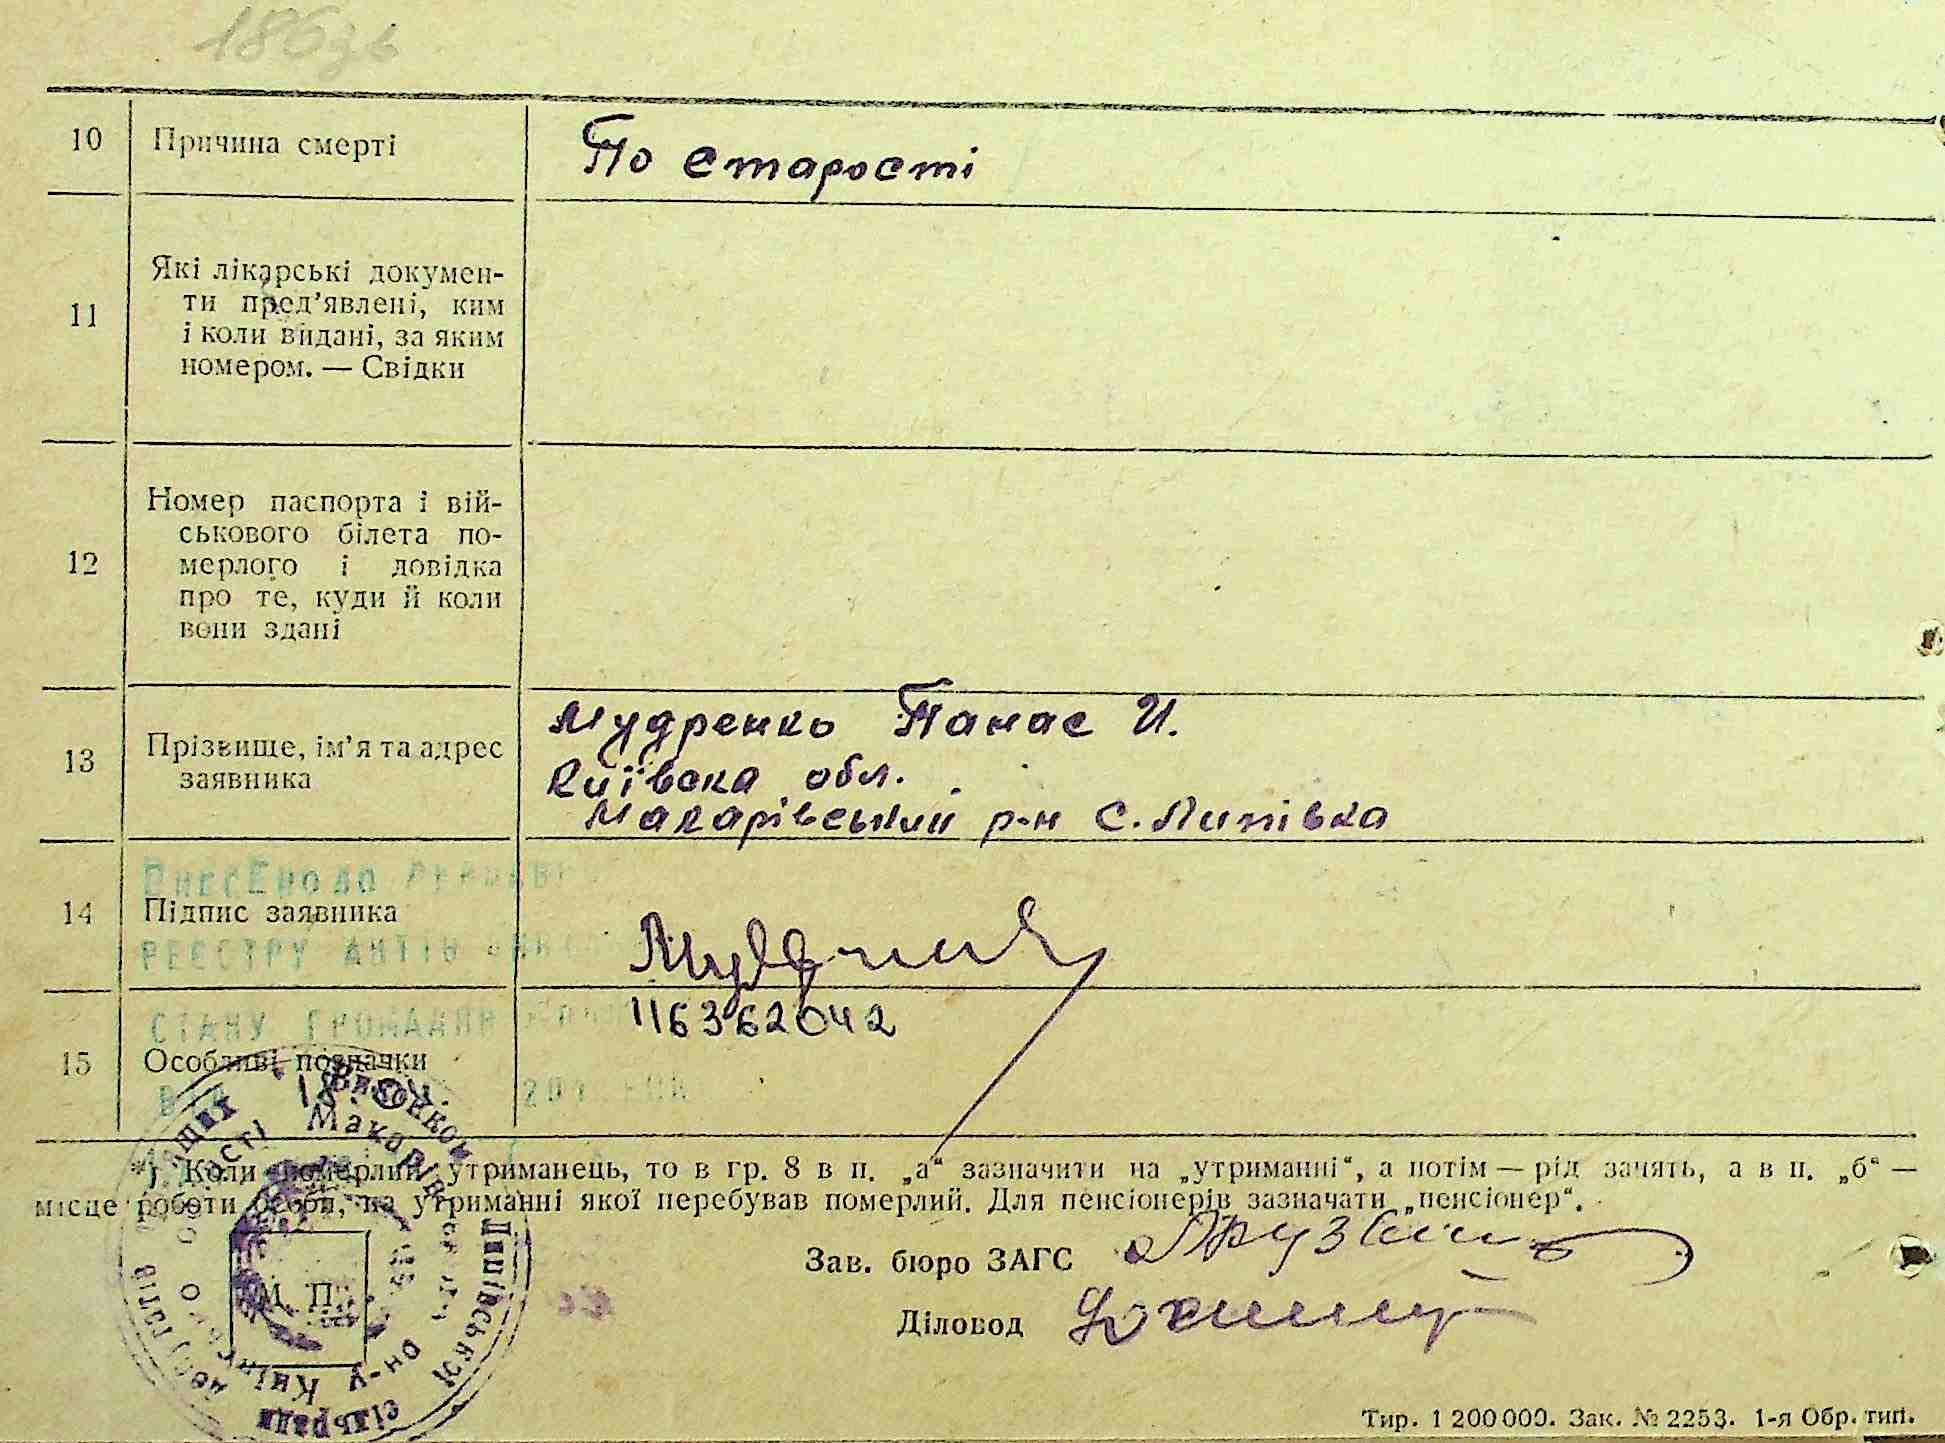 186зв
10 Причина смерті По старості
11 Які лікарські докумен-
ти пред’явлені, ким
і коли видані, за яким
номером. — Свідки
12 Номер паспорта і вій-
ськового білета по-
мерлого і довідка
про те, куди й коли
вони здані
13 Прізвище, ім’я та адрес
заявника
Мудренко Панас И.
Київска обл.
Макарівський р-н с. Липівка
Внесено до державно
14 Підпис заявника
РЕЄСТРУ АКТІВ
СТАНУ ГРОМАДЯН
116362042
15 Особливі позначки
*) Коли померлий утриманець, то в гр. 8 в п. „а“ зазначити на „утриманні“, а потім — рід занять, а в п. „б“ —
місце роботи особи, на утриманні якої перебував померлий. Для пенсіонерів зазначати „пенсіонер“.
Зав. бюро ЗАГС
Діловод
М. П.
Виконком Липівської сільради
Макарів
р-ну Київсько
Тир. 1 200 000. Зак. № 2253. 1-я Обр. тип.